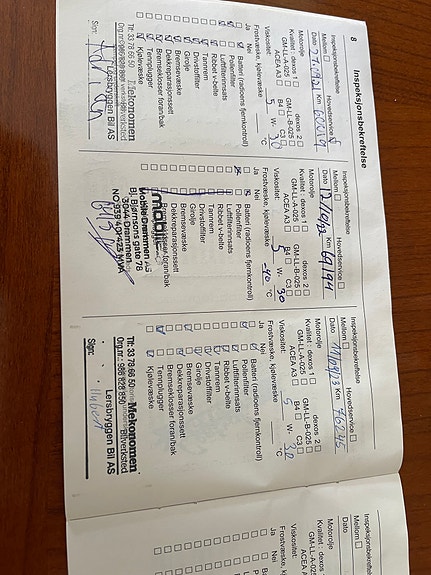 8
Inspeksjonsbekreftelse
Inspeksjonsbekreftelse
Mellom Hovedservice
Dato Km
Motorolje
Kvalitet: dexos 1 dexos 2
GM-LL-A-025 GM-LL-B-025
ACEA A3 B4 C3
Viskositet: 5 W- 30
Frostvæske, kjølevæske °C
Ja Nei
Batteri (radioens fjernkontroll)
Pollenfilter
Luftfilterinnsats
Ribbet v-belte
Tannrem
Drivstoffilter
Girolje
Bremsevæske
Dekkreparasjonssett
Bremseklosser foran/bak
Tennplugger
Kjølevæske
Tlf: 33 78 66 50 Mekonomen
Bilverksted
Lersbryggen Bil AS
Sign:
Inspeksjonsbekreftelse
Mellom Hovedservice
Dato Km 69194
Motorolje
Kvalitet: dexos 1 dexos 2
GM-LL-A-025 GM-LL-B-025
ACEA A3 B4 C3
Viskositet: 5 W- 30
Frostvæske, kjølevæske -40 °C
Ja Nei
Batteri (radioens fjernkontroll)
Pollenfilter
Luftfilterinnsats
Ribbet v-belte
Tannrem
Drivstoffilter
Girolje
Bremsevæske
Dekkreparasjonssett
foran/bak
mobile
Mobile Drammen AS
Bj. Bjørnsons gate 78
3044 Drammen
Inspeksjonsbekreftelse
Mellom Hovedservice
Dato Km 76245
Motorolje
Kvalitet: dexos 1 dexos 2
GM-LL-A-025 GM-LL-B-025
ACEA A3 B4 C3
Viskositet: 5 W- 30
Frostvæske, kjølevæske °C
Ja Nei
Batteri (radioens fjernkontroll)
Pollenfilter
Luftfilterinnsats
Ribbet v-belte
Tannrem
Drivstoffilter
Girolje
Bremsevæske
Dekkreparasjonssett
Bremseklosser foran/bak
Tennplugger
Kjølevæske
Tlf: 33 78 66 50 Mekonomen
Org.nr.: 986 828 850 Bilverksted
Lersbryggen Bil AS
Sign:
Inspeksjonsbekreftelse
Mellom
Dato
Motorolje
Kvalitet: dexos 1
GM-LL-A-025
ACEA A3
Viskositet:
Frostvæske, kjølevæske
Ja Nei